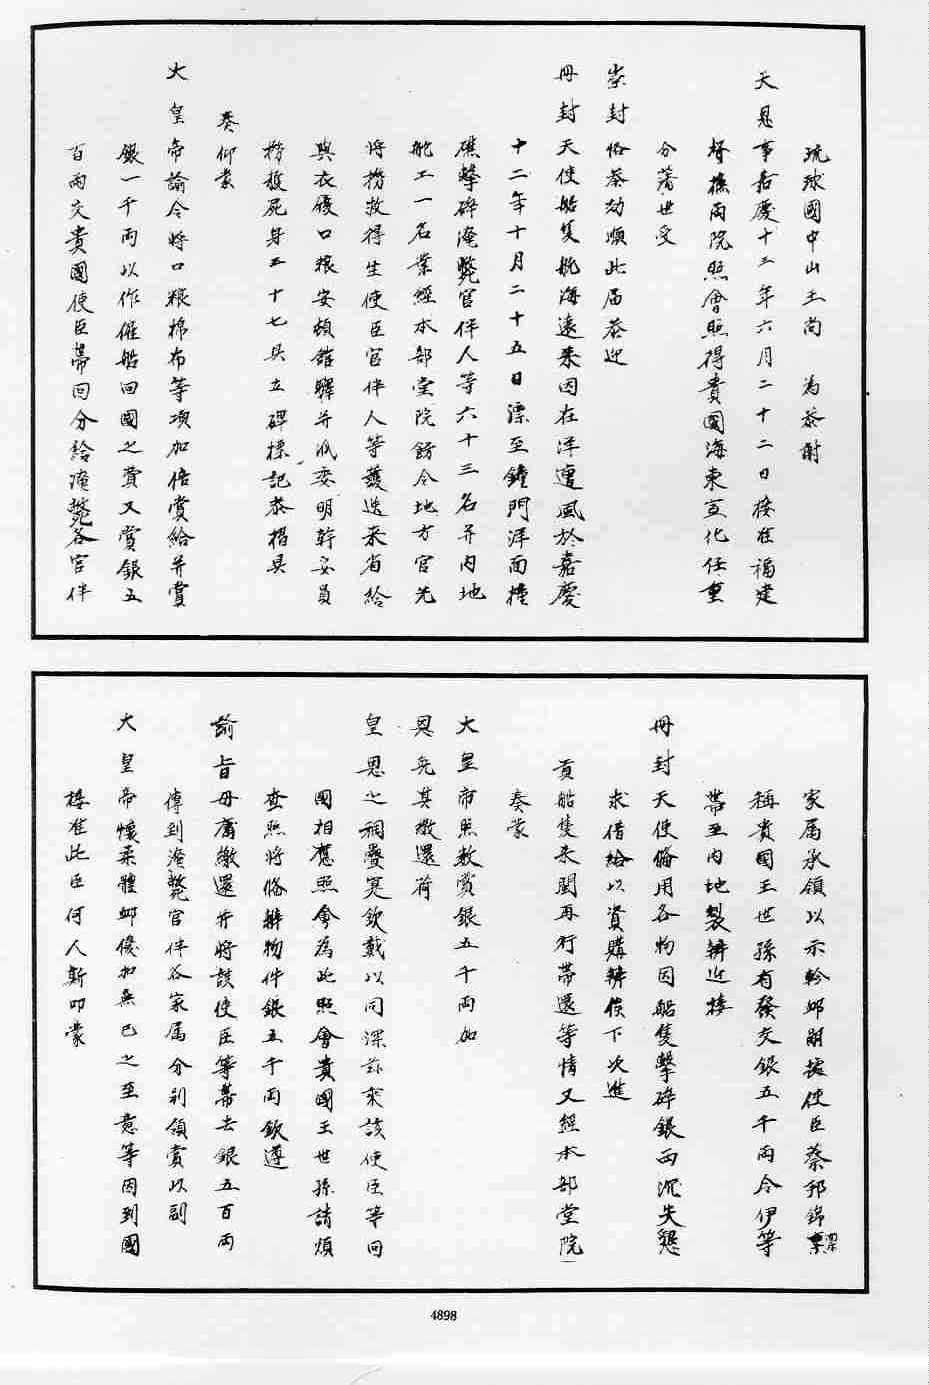 琉球國中山王尚　為恭謝
天恩事嘉慶十三年六月二十二日接准福建
督撫兩院照會照得貴國海東亙化任重
分藩世受
崇封恪恭劾順此届恭迎
冊封天使船隻航海遠來因在洋遭風於嘉慶
十二年十月二十五日漂至鐘門洋面撞
礁擊碎淹斃官伴人等六十三名并內地
舵工一名業經本部堂院飭令地方官先
將撈救得生使臣官伴人等護送來省給
與衣履口粮安頓舘驛并派委明幹妥員
撈獲屍身五十七具立碑標記恭摺具
奏仰蒙
大皇帝諭令將口粮棉布等項加倍賞給并賞
銀一千兩以作催船回國之費又賞銀五
百兩交貴國使臣帯回分給淹斃各官伴
家属承領以示軫邺嗣據使臣蔡邦錦稟
稱貴國王世孫有發交銀五千兩令伊等
帯至內地製辨近接
冊封天使俻用各物因船隻擊碎銀兩沉失懇
求借給以資購辨俟下次進
貢船隻來閩再行帯還等情又經本部堂院
奏蒙
大皇帝照数賞銀五千兩加
恩免其繳還荷
皇恩之稠疊寔欽戴以同深茲業該使臣等回
國相應照會為此照會貴國王世孫請煩
查照將俻辨物件銀五千兩欽遵
諭旨毋庸繳還并將該使臣等帯去銀五百兩
傳到淹斃官伴各家属分別領賞以副
大皇帝懷柔體邺優加無已之至意等因到國
接准此臣何人斯叩蒙
4898